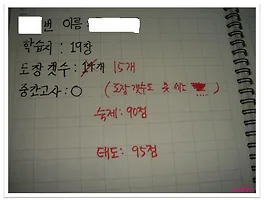 번 이름
학습지: 19장
도장 갯수: 15개
중간고사: O (도장 갯수도 못 세는
숙제: 90점
태도: 95점